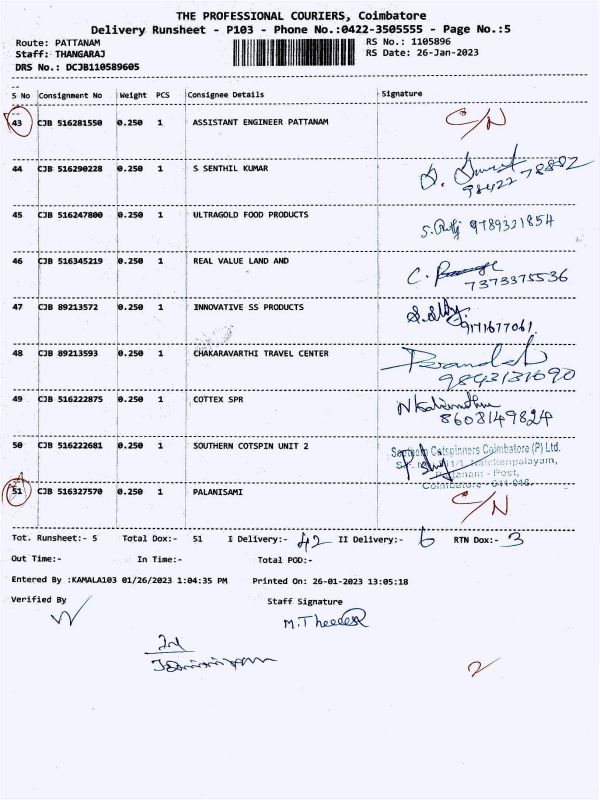 THE PROFESSIONAL COURIERS, Coimbatore
Delivery Runsheet - P103 - Phone No.:0422-3505555 - Page No.:5
Route: PATTANAM RS No.: 1105896
Staff: THANGARAJ RS Date: 26-Jan-2023
DRS No.: DCJB110589605
S No Consignment No Weight PCS Consignee Details Signature
43 CJB 516281550 0.250 1 ASSISTANT ENGINEER PATTANAM C/N
44 CJB 516290228 0.250 1 S SENTHIL KUMAR 98422 78882
45 CJB 516247800 0.250 1 ULTRAGOLD FOOD PRODUCTS 9789321854
46 CJB 516345219 0.250 1 REAL VALUE LAND AND 7373375536
47 CJB 89213572 0.250 1 INNOVATIVE SS PRODUCTS 9171677061
48 CJB 89213593 0.250 1 CHAKARAVARTHI TRAVEL CENTER 9843131690
49 CJB 516222875 0.250 1 COTTEX SPR 8608149824
50 CJB 516222681 0.250 1 SOUTHERN COTSPIN UNIT 2
Southern Cotspinners Coimbatore (P) Ltd.
Naickenpalayam,
Pattanam - Post,
Coimbatore - 641 016.
51 CJB 516327570 0.250 1 PALANISAMI C/N
Tot. Runsheet:- 5 Total Dox:- 51 I Delivery:- 42 II Delivery:- 6 RTN Dox:- 3
Out Time:- In Time:- Total POD:-
Entered By :KAMALA103 01/26/2023 1:04:35 PM Printed On: 26-01-2023 13:05:18
Verified By Staff Signature
2